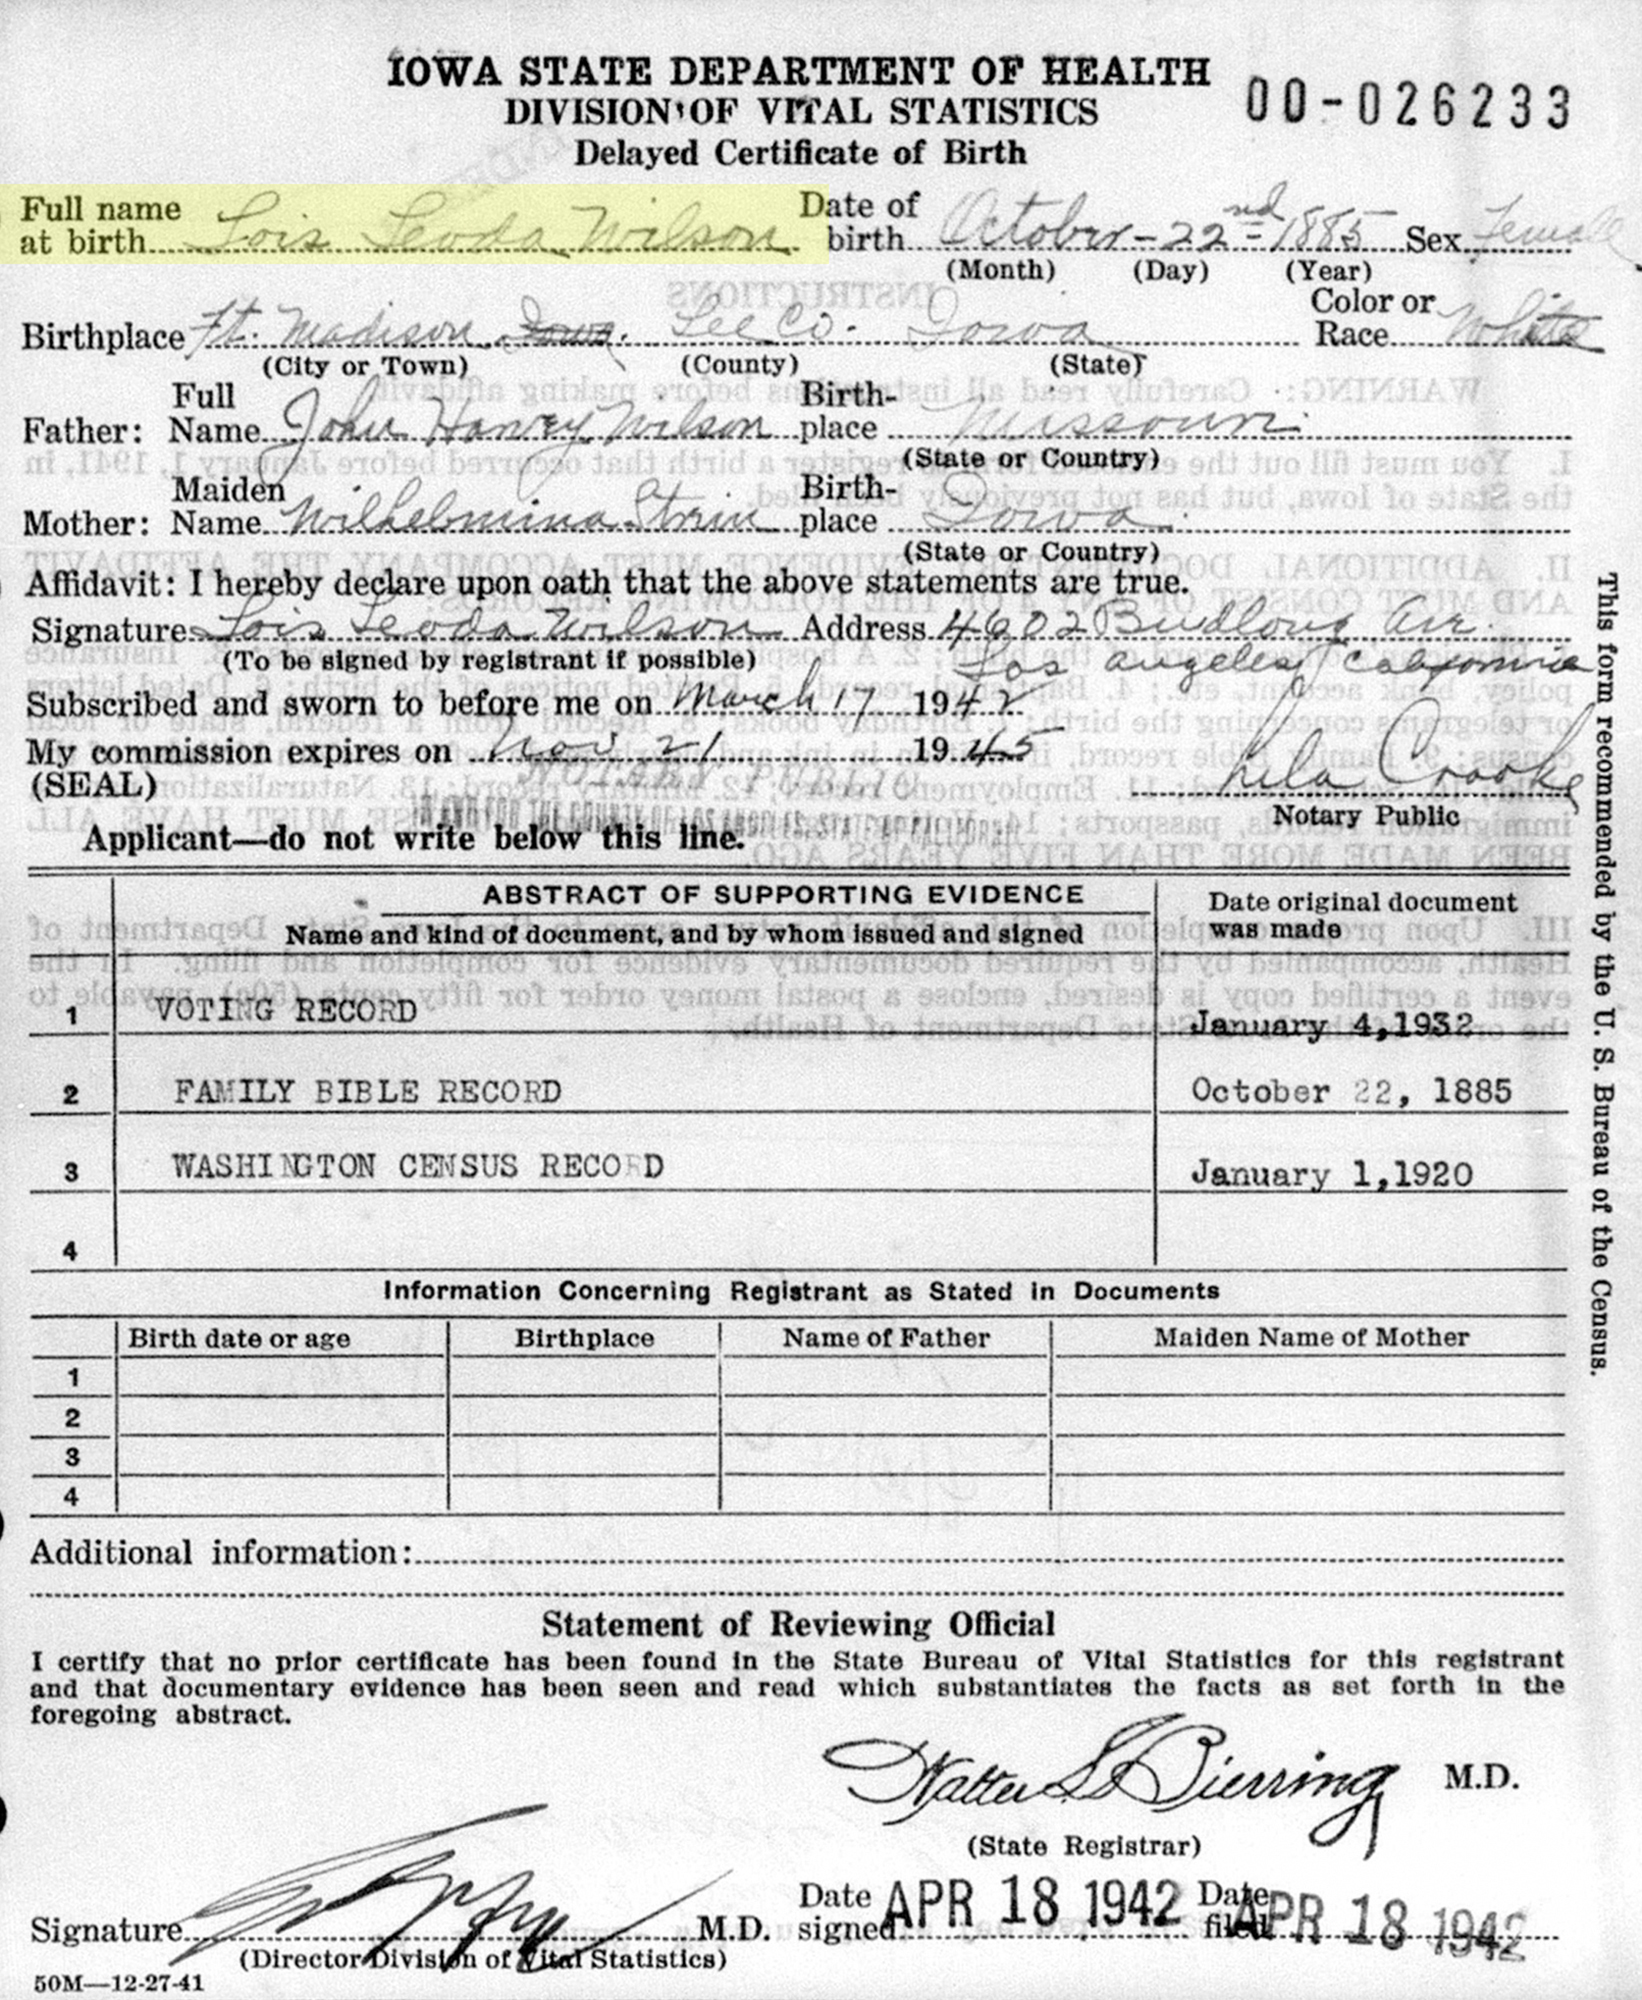 IOWA STATE DEPARTMENT OF HEALTH
00-026233
DIVISION OF VITAL STATISTICS
Delayed Certificate of Birth
Full name at birth Lois Leoda Wilson Date of birth October-22nd-1885 Sex Female
(Month) (Day) (Year)
Birthplace Ft. Madison Iowa. Lee Co. Iowa Color or Race White
(City or Town) (County) (State)
Father: Full Name John Harvey Wilson Birth-place Missouri
(State or Country)
Mother: Maiden Name Wilhelmina Birth-place Iowa
(State or Country)
Affidavit: I hereby declare upon oath that the above statements are true.
Signature Lois Leoda Wilson Address 4602 Budlong Ave.
(To be signed by registrant if possible) Los Angeles, California
Subscribed and sworn to before me on March 17 1942
My commission expires on Nov 21 1945
(SEAL) Lela Crooke
NOTARY PUBLIC
IN AND FOR THE COUNTY OF LOS ANGELES, STATE OF CALIFORNIA
Notary Public
Applicant—do not write below this line.
ABSTRACT OF SUPPORTING EVIDENCE
Name and kind of document, and by whom issued and signed
Date original document was made
1 VOTING RECORD January 4,1932
2 FAMILY BIBLE RECORD October 22, 1885
3 WASHINGTON CENSUS RECORD January 1,1920
4
Information Concerning Registrant as Stated in Documents
Birth date or age Birthplace Name of Father Maiden Name of Mother
1
2
3
4
Additional information:
Statement of Reviewing Official
I certify that no prior certificate has been found in the State Bureau of Vital Statistics for this registrant
and that documentary evidence has been seen and read which substantiates the facts as set forth in the
foregoing abstract.
Walter L. Bierring M.D.
(State Registrar)
Signature M.D. Date signed APR 18 1942 Date filed APR 18 1942
(Director Division of Vital Statistics)
50M—12-27-41
This form recommended by the U. S. Bureau of the Census.